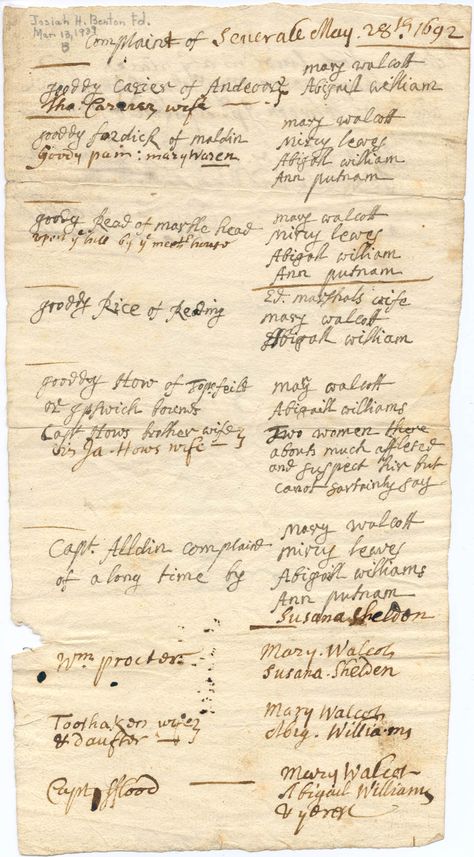 Josiah H. Benton Fd.
Mar 13, 1939
B
Complaint of Severale May. 28th 1692
goody Carier of Andeover mary walcott
Tho. Carerer wife Abigaill william
goody fordick of maldin mary walcott
Goody pain: mary Waren mircy lewes
Abigall william
Ann putnam
goody Read of marble head mary walcott
upon ye hill by ye meet house mircy lewes
Abigall william
Ann putnam
goody Rice of Reding Ed. marshals wife
mary walcott
Abigall william
goody How of Topsfeilt mary walcott
or Ipswich bounds Abigaill williams
Capt. Hows brother wife Two women there
Ja. Hows wife abouts much afflicted
and suspect hir but
canot sartainly say
Capt. Alldin complaind Mary walcott
of a long time by mircy lewes
Abigall williams
Ann putnam
Susana Sheldon
Wm procter Mary. Walcot
Susana. Shelden
Toothaker wife Mary Walcot
& daufter Abig. Williams
Capt fflood Mary Walcot
Abigail Williams
& ye rest